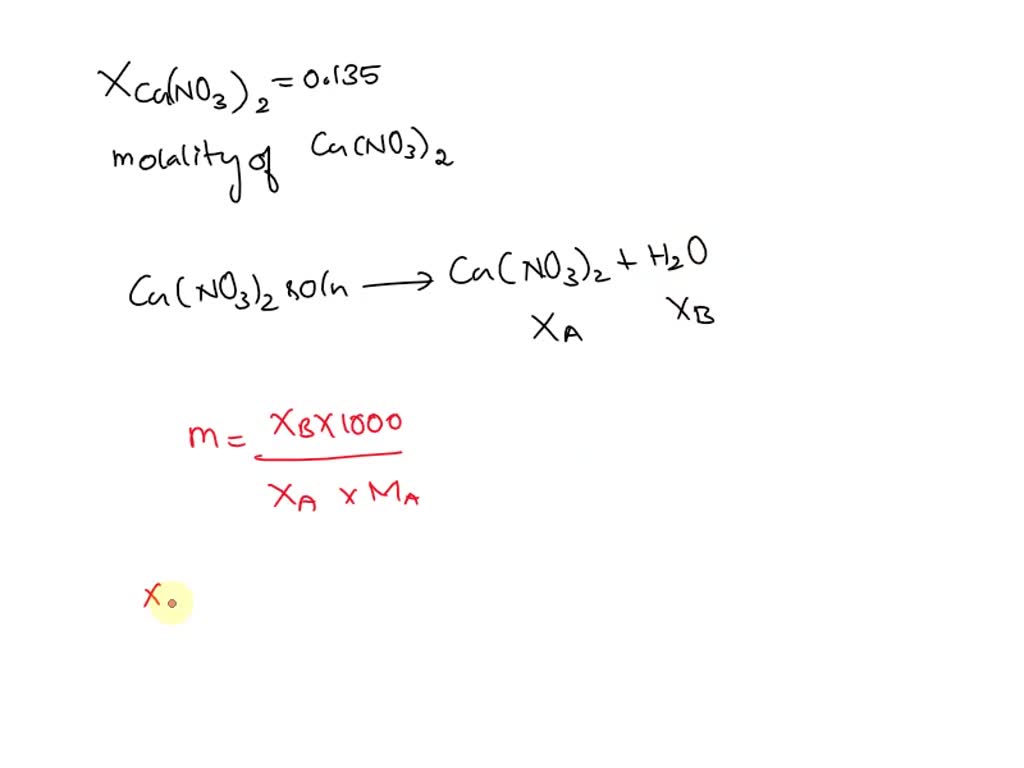 X Ca(NO3)2 = 0.135
molality of Ca(NO3)2
Ca(NO3)2 soln → Ca(NO3)2 + H2O
XA XB
m = XB X 1000
XA x MA
X